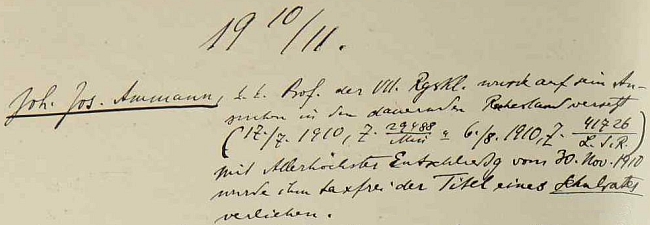 19 10/11.
Joh. Jos. Ammann, k. k. Prof. der VII. Rgskl. wurde auf sein An-
suchen in den dauernden Ruhestand versetzt
(17./7. 1910, Z. 29488/Min u. 6./8. 1910, Z. 41726/L.S.R.)
mit Allerhöchster Entschließg vom 30. Nov. 1910
wurde ihm taxfrei der Titel eines Schulrates
verliehen.